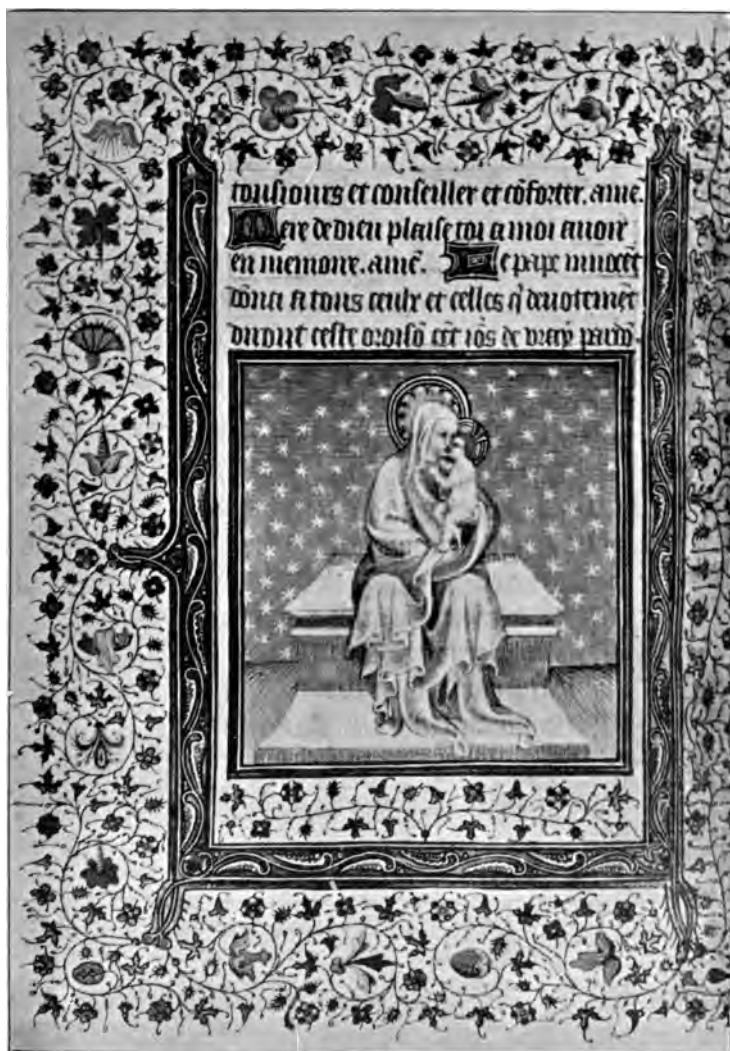 tousiours et conseiller et cõforter. ame.
Mere de dieu plaise toi a moi auoir
en memoire. amẽ. Le pape innocẽt
a tous ceulx et celles q̃ deuotemẽt
diront ceste oroisõ de vray